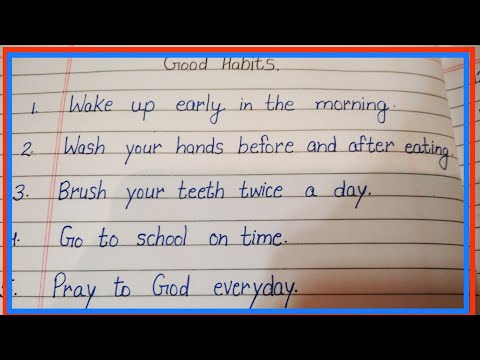 Good Habits.
1. Wake up early in the morning.
2. Wash your hands before and after eating.
3. Brush your teeth twice a day.
4. Go to school on time.
5. Pray to God everyday.